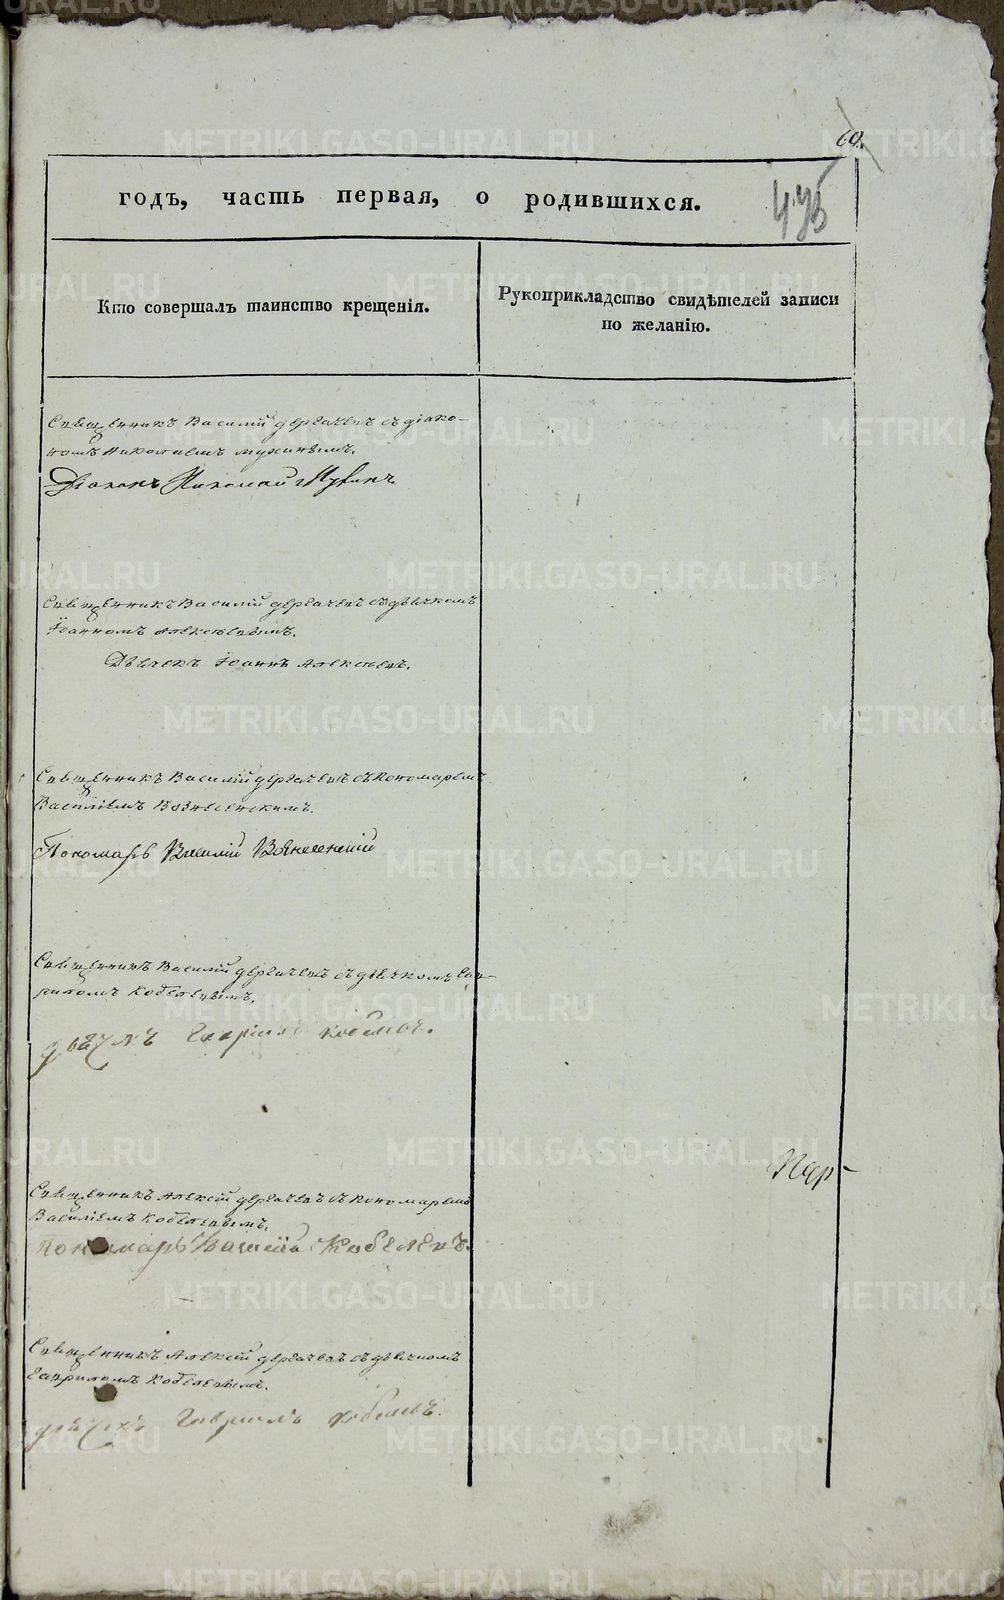 60.
годъ, часть первая, о родившихся.
Кто совершалъ таинство крещенія.
Рукоприкладство свидѣтелей записи
по желанію.
Священникъ Василій Дергачевъ съ діяко-
номъ Николаемъ Мухинымъ.
Діаконъ Николай Мухинъ
Священникъ Василій Дергачевъ съ дьячкомъ
Іоанномъ Алексѣевымъ.
Дьячекъ Іоаннъ Алексѣевъ.
Священникъ Василій Дергачевъ съ пономаремъ
Василіемъ Вознесенскимъ.
Пономарь Василій Вознесенскій
Священникъ Василій Дергачевъ съ дьячкомъ Гав-
риломъ Кобелевымъ.
дьячекъ Гаврилъ Кобелевъ.
Священникъ Алексѣй Дергачевъ съ пономаремъ
Василіемъ Кобелевымъ.
пономарь Василій Кобелевъ.
Священникъ Алексѣй Дергачевъ съ дьячкомъ
Гавриломъ Кобелевымъ.
дьячекъ Гаврилъ Кобелевъ.
METRIKI.GASO-URAL.RU